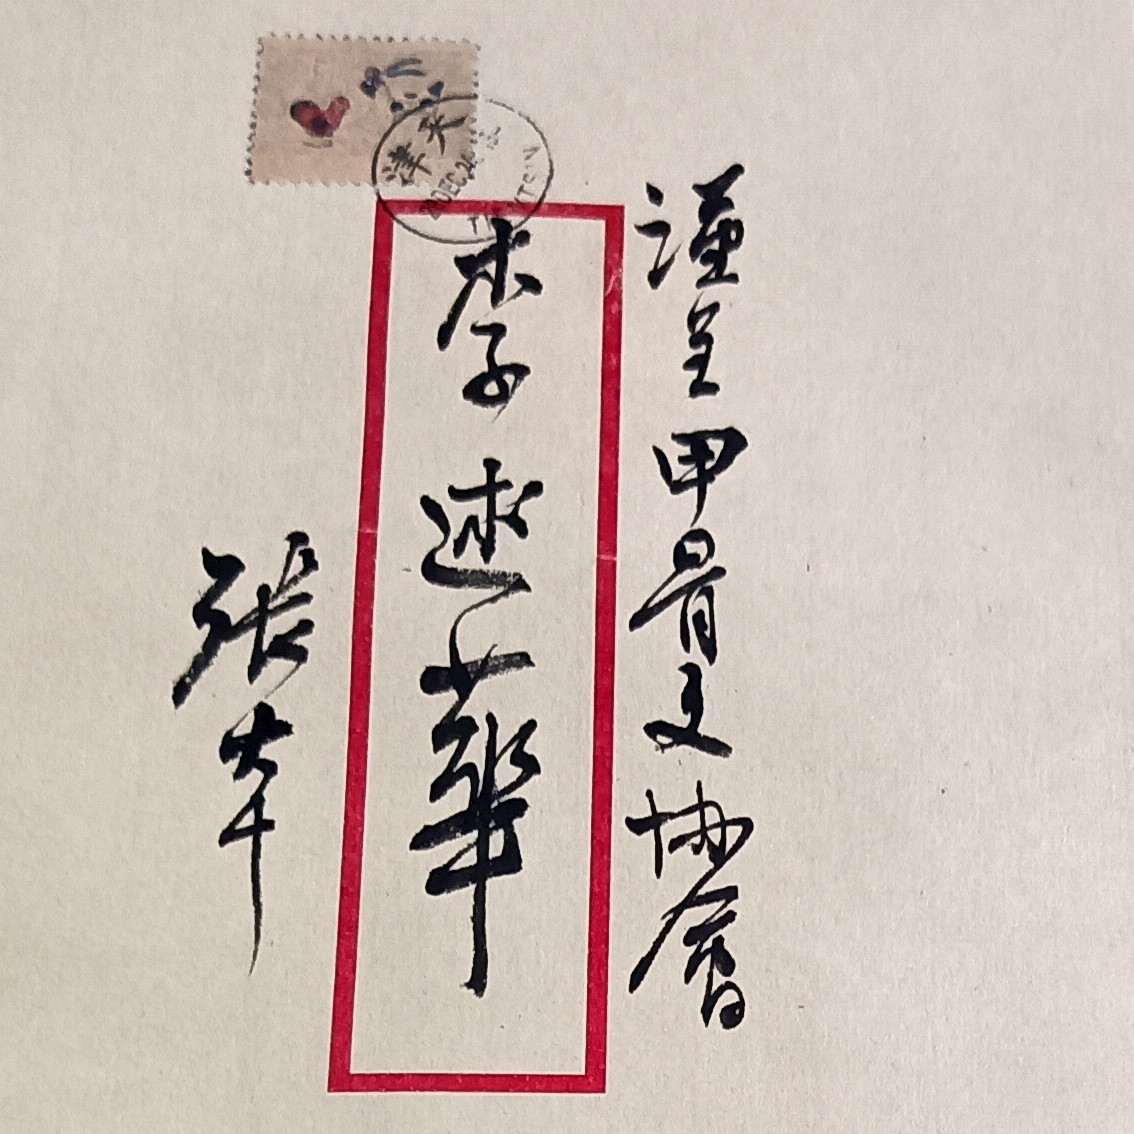 謹呈甲骨文協會
李逑華
張大千
天津
DEC 24
TIENTSIN